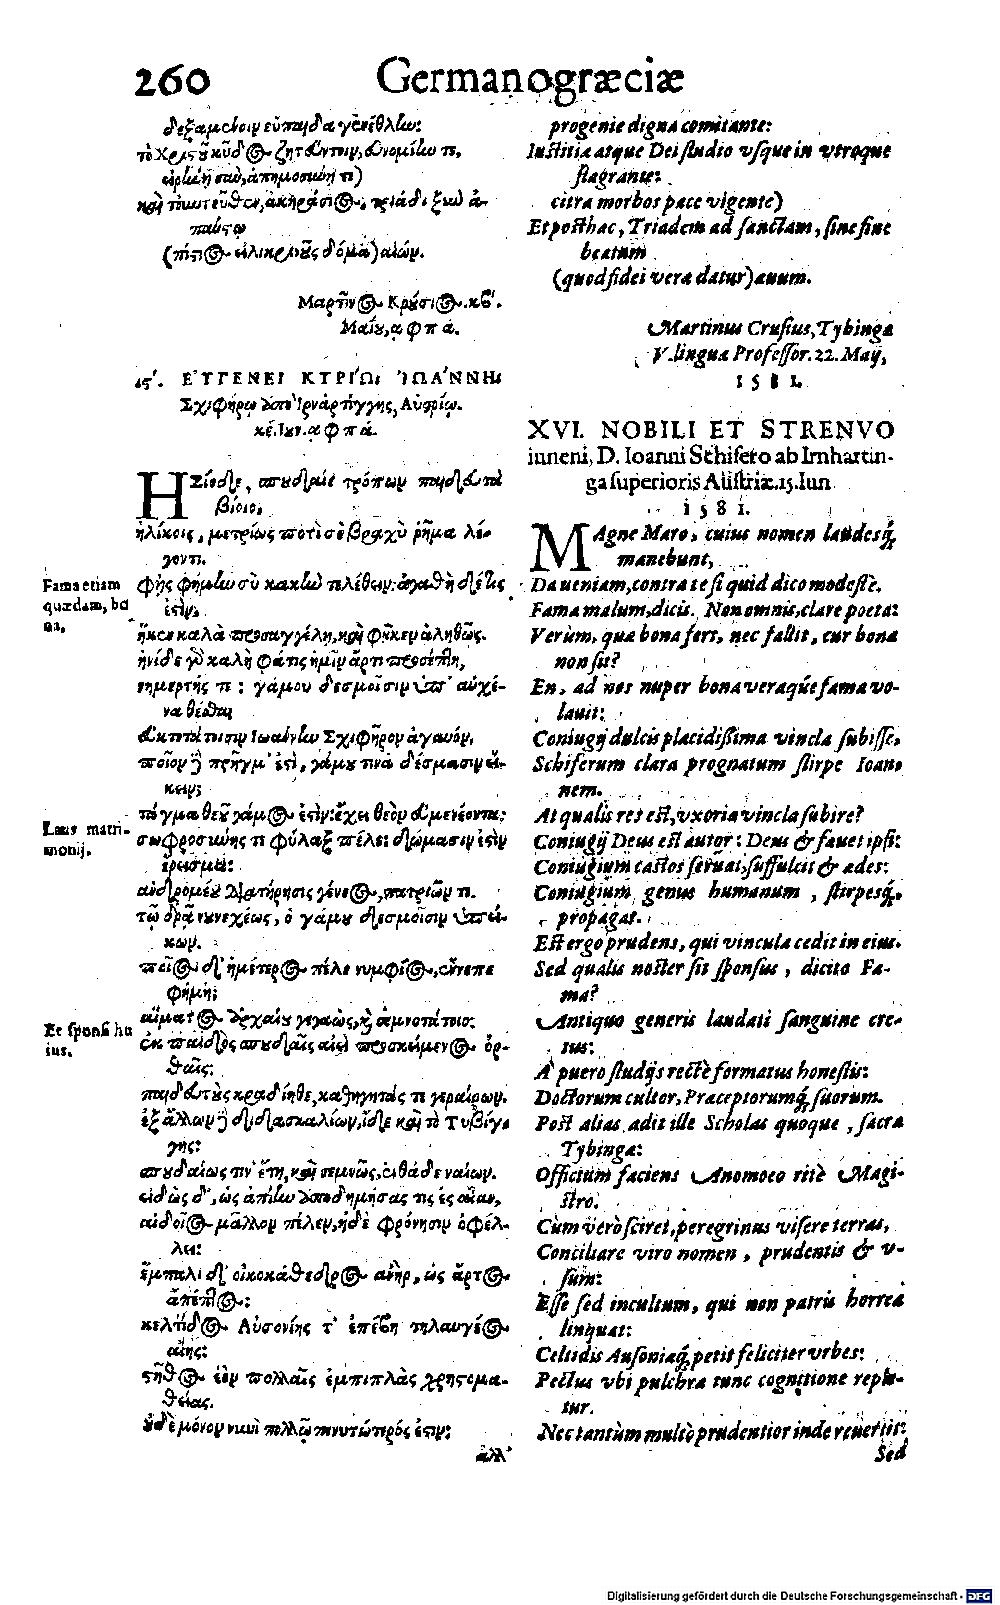 260 Germanográeciæ
δεξαμένοιν εὐπαιδα γενέθλην:
τὸ Χριστοῦ κῦδος ζητεῦντοιν,
καὶ
Μαρτῖνος Κρούσιος. κβ΄.
Μαΐου, α φ π ά.
ιϛ΄. ΕΥ̓ΓΕΝΕΙ͂ ΚΥΡΙΏͺ ἸΩΆΝΝΗͺ
Σχιφήρῳ ἀπὸ Ἰρνάρτιγγης, Αὐστρίῳ.
ιέ. Ιουν. α φ π ά.
Ἡσίοδε,
βίοιο,
ἡλίκοις, μετρίως ποτὶ σὲ βραχὺ ῥῆμα λέ-
γοντι.
Fama etiam
quædam, bo
na.
φῂς φήμην σὺ κακὴν πελέθειν: ἀγαθὴ δέ τις
ἐστίν,
ἥκε καλὰ προσαγγέλῃ, καὶ φῆκεν ἀληθῶς.
ἠνίδε γὸ καλὴ φάτις ἡμῖν ἄρτι προσέπτη,
νημερτής τι: γάμου δεσμοῖσιν ὑπ' αὐχέ-
να θέσθαι
Ἰωάννην Σχιφῆρον ἀγαυόν.
ποῖον δὲ πρῆγμ' ἐστὶ, γάμου τινὰ δέσμασιν εἴ-
κειν;
Laus matri-
monij.
τάγμα θεοῦ γάμος ἐστίν: ἔχει θεὸν εὐμενέοντα:
σωφροσύνης τι φύλαξ πέλει: δώμασιν ἐστὶν
ἔρεισμα:
ἀνδρομέου διατήρησις γένεος, πατριῶν τι.
τῷ ὁρᾷ νουνεχέως, ὁ γάμου δεσμοῖσιν ὑπεί-
κων.
ποῖος δ' ἡμέτερος πέλε νυμφίος, ἔννεπε
φήμη;
Et sponsi hu
ius.
αἵματος ἀρχαίου γεγαὼς, καὶ σεμνοτάτοιο:
ἐκ παιδὸς σπουδαῖς αἰεὶ προσκείμενος ὀρ-
θαῖς:
παιδευτὰς κραδίηθε, καθηγητάς τι γεραίρων.
ἐξ ἄλλων δὲ διδασκαλίων, ἴδε καὶ τὸ Τυβίγ-
γης:
σπουδαίως
εἰδὼς δ', ὡς
αἰδοῖος μᾶλλον πέλεν, ἠδὲ φρόνησιν ὀφέλ-
λει:
ἔμπαλι δ' οἰκοκάθεδρος ἀνὴρ, ὡς ἄρτος
ἄπεπτος:
κελτίδος Αὐσονίης τ' ἐπέβη τηλαυγέος
αἴης:
στῆθος ἑὸν πολλαῖς ἐμπιπλὰς χρηστομα-
θείας.
οὐδὲ μόνον νυνὶ πολλῷ πινυτώτερός ἐστιν:
ἀλλ'
progenie digna comitante:
Iustitia atque Dei studio vsque in vtroque
flagrante:
citra morbos pace vigente)
Et posthac, Triadem ad sanctam, sine fine
beatum
(quod fidei vera datur) æuum.
Martinus Crusius, Tybingæ
V. lingua Professor. 22. Maij,
1581.
XVI. NOBILI ET STRENVO
iuueni, D. Ioanni Schifero ab Irnhartin-
ga superioris Austriæ. 15. Iun.
1581.
MAgne Maro, cuius nomen laudesq́;
manebunt,
Da ueniam, contra te si quid dico modeste.
Fama malum, dicis. Non omnis, clare poeta:
Verùm, quæ bona fert, nec fallit, cur bona
non sit?
En, ad nos nuper bona veraq́ue fama vo-
lauit:
Coniugij dulcis placidissima vincla subisse,
Schiferum clara prognatum stirpe Ioan-
nem.
At qualis res est, vxoria vincla subire?
Coniugij Deus est autor: Deus & fauet ipsi:
Coniugium castos seruat, suffulcit & ædes:
Coniugium genus humanum, stirpesq́;
propagat.
Est ergo prudens, qui vincula cedit in eius.
Sed qualis noster sit sponsus, dicito Fa-
ma?
Antiquo generis laudati sanguine cre-
tus:
A puero studijs rectè formatus honestis:
Doctorum cultor, Præceptorumq́; suorum.
Post alias adit ille Scholas quoque, sacra
Tybingæ:
Officium faciens Anomœo ritè Magi-
stro.
Cùm verò sciret, peregrinas visere terras,
Conciliare viro nomen, prudentis & v-
sum:
Esse sed incultum, qui non patria horrea
linquat:
Celtidis Ausoniæq́; petit feliciter vrbes:
Pectus vbi pulchra tunc cognitione reple-
tur.
Nec tantùm multò prudentior inde reuertit:
Sed
Digitalisierung gefördert durch die Deutsche Forschungsgemeinschaft - DFG